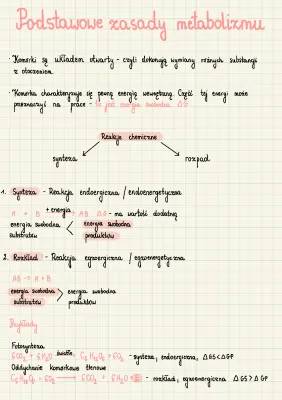 Podstawowe zasady metabolizmu
• Komórki są układem otwarty - czyli dokonują wymiany różnych substancji
z otoczeniem.
• Komórka charakteryzuje się pewną energią wewnętrzną. Część tej energii może
przeznaczyć na pracę - to jest energia swobodna ΔG
Reakcje chemiczne
synteza rozpad
1. Synteza - Reakcja endoergiczna / endoenergetyczna
A + B + energia → AB ΔG - ma wartość dodatnią
energia swobodna substratów < energia swobodna produktów
2. Rozkład - Reakcja egzoergiczna / egzoenergetyczna
AB → A + B
energia swobodna substratów > energia swobodna produktów
Przykłady
Fotosynteza
6CO₂ + 6H₂O światło C₆H₁₂O₆ + 6O₂ - synteza, endoergiczna, ΔGS<ΔGP
Oddychanie komórkowe tlenowe
C₆H₁₂O₆ + 6O₂ → 6CO₂ + 6H₂O + E - rozkład, egzoenergiczna ΔGS>ΔGP